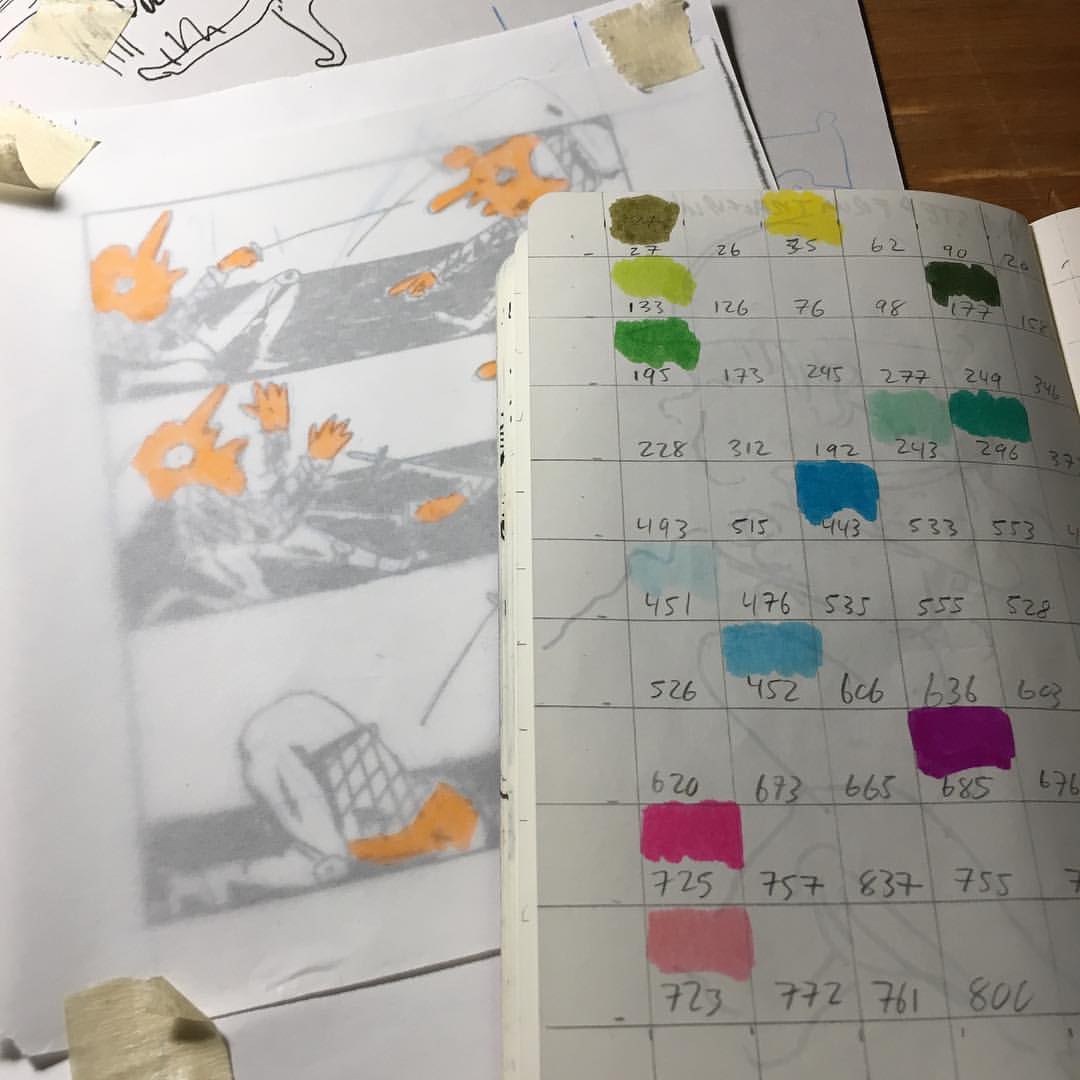 27 26 35 62 90
133 126 76 98 177 158
195 173 245 277 249 346
228 312 192 243 296
493 515 443 533 553
451 476 535 555 528
526 452 606 636 603
620 673 665 685 676
725 757 837 755
723 772 761 800